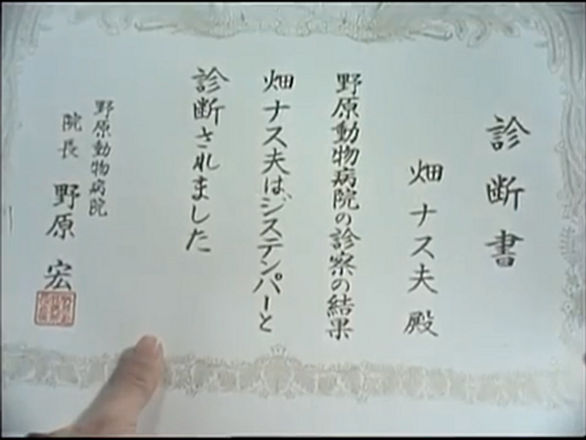 診断書
畑ナス夫殿
野原動物病院の診察の結果
畑ナス夫はジステンパーと
診断されました
野原動物病院
院長 野原宏